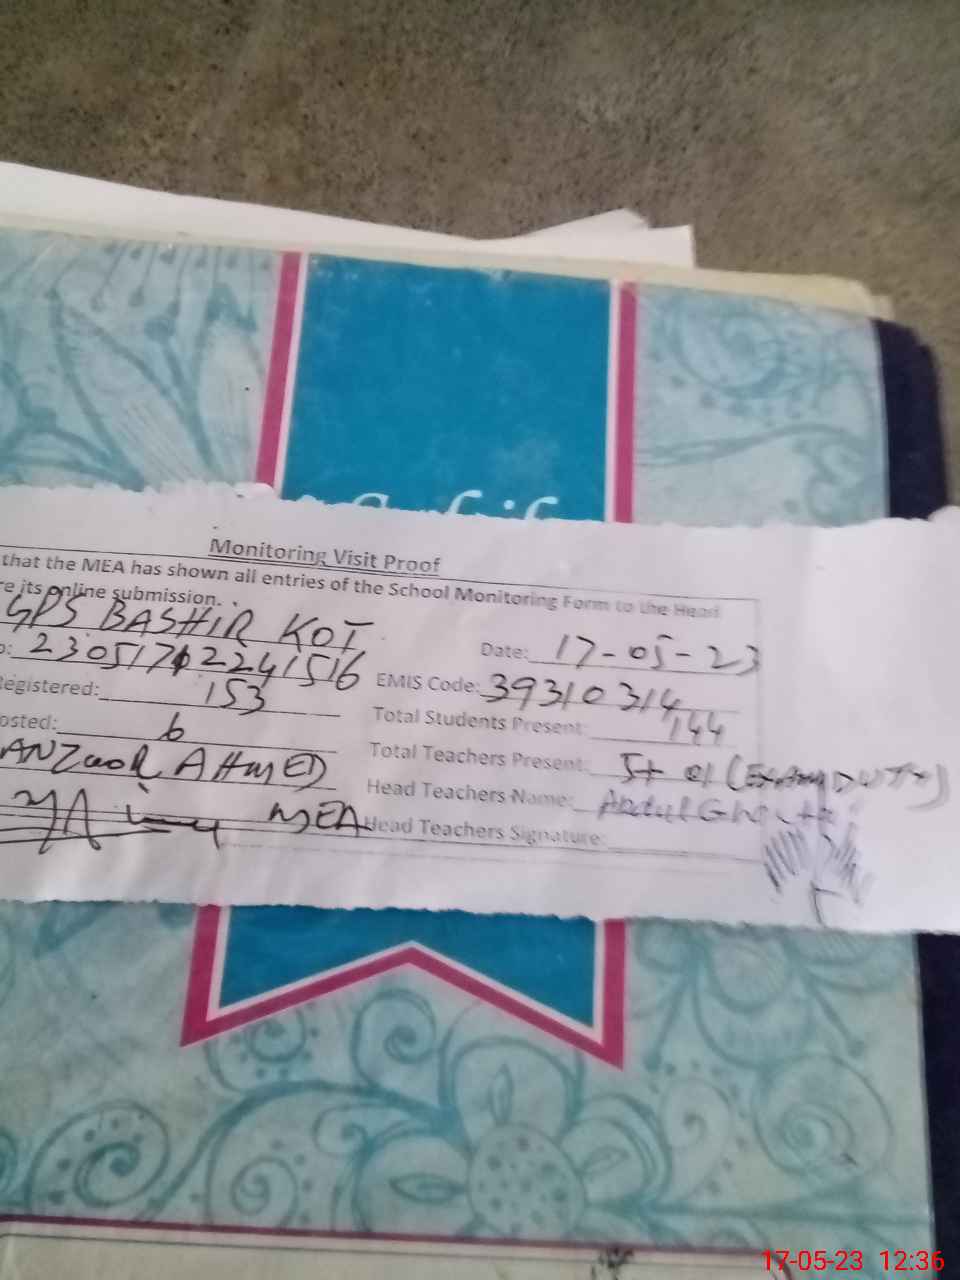 Monitoring Visit Proof
that the MEA has shown all entries of the School Monitoring Form to the Head
re its online submission.
GPS BASHIR KOT
Date: 17-05-23
EMIS Code: 39310314
egistered: 153
Total Students Present: 144
osted: 6
Total Teachers Present: 5+01 (EXAM DUTY)
ANZOOR AHMED
Head Teachers Name: Abdul
MEA
Head Teachers Signature:
17-05-23 12:36